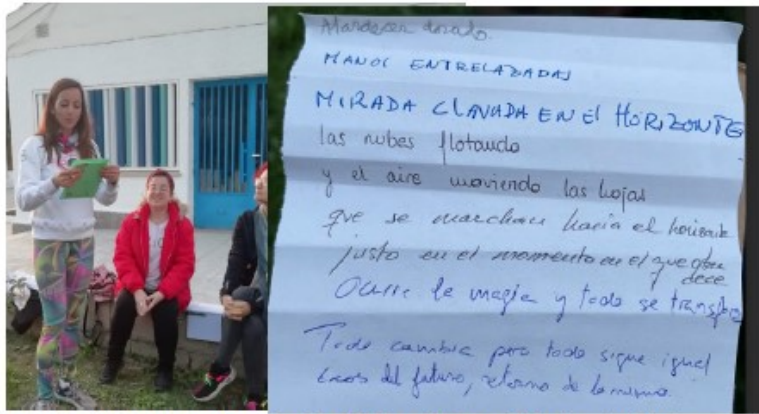 Atardecer dorado.
MANOS ENTRELAZADAS
MIRADA CLAVADA EN El HORIZONTE
las nubes flotando
y el aire moviendo las hojas
que se marchan hacia el horizonte
justo en el momento en el que
dece
Ocurre la magia y todo se
Todo cambia pero todo sigue igual
ecos del futuro, retorno de lo mismo.